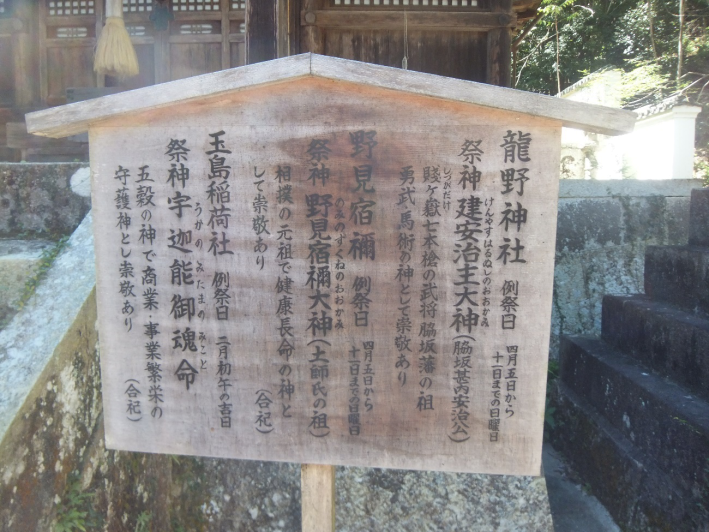 龍野神社 例祭日 四月五日から
十一日までの日曜日
祭神 建安治主大神(脇坂甚内安治公)
けんやすはるぬしのおおかみ
賤ヶ嶽七本槍の武将 脇坂藩の祖
しづがたけ
勇武、馬術の神として崇敬あり
野見宿禰 例祭日 四月五日から
十一日までの日曜日
祭神 野見宿禰大神(土師氏の祖)
のみのすくねのおおかみ
相撲の元祖で健康長命の神と
して崇敬あり (合祀)
玉島稲荷社 例祭日 二月初午の吉日
祭神 宇迦能御魂命
うかのみたまのみこと
五穀の神で商業・事業繁栄の
守護神とし崇敬あり (合祀)